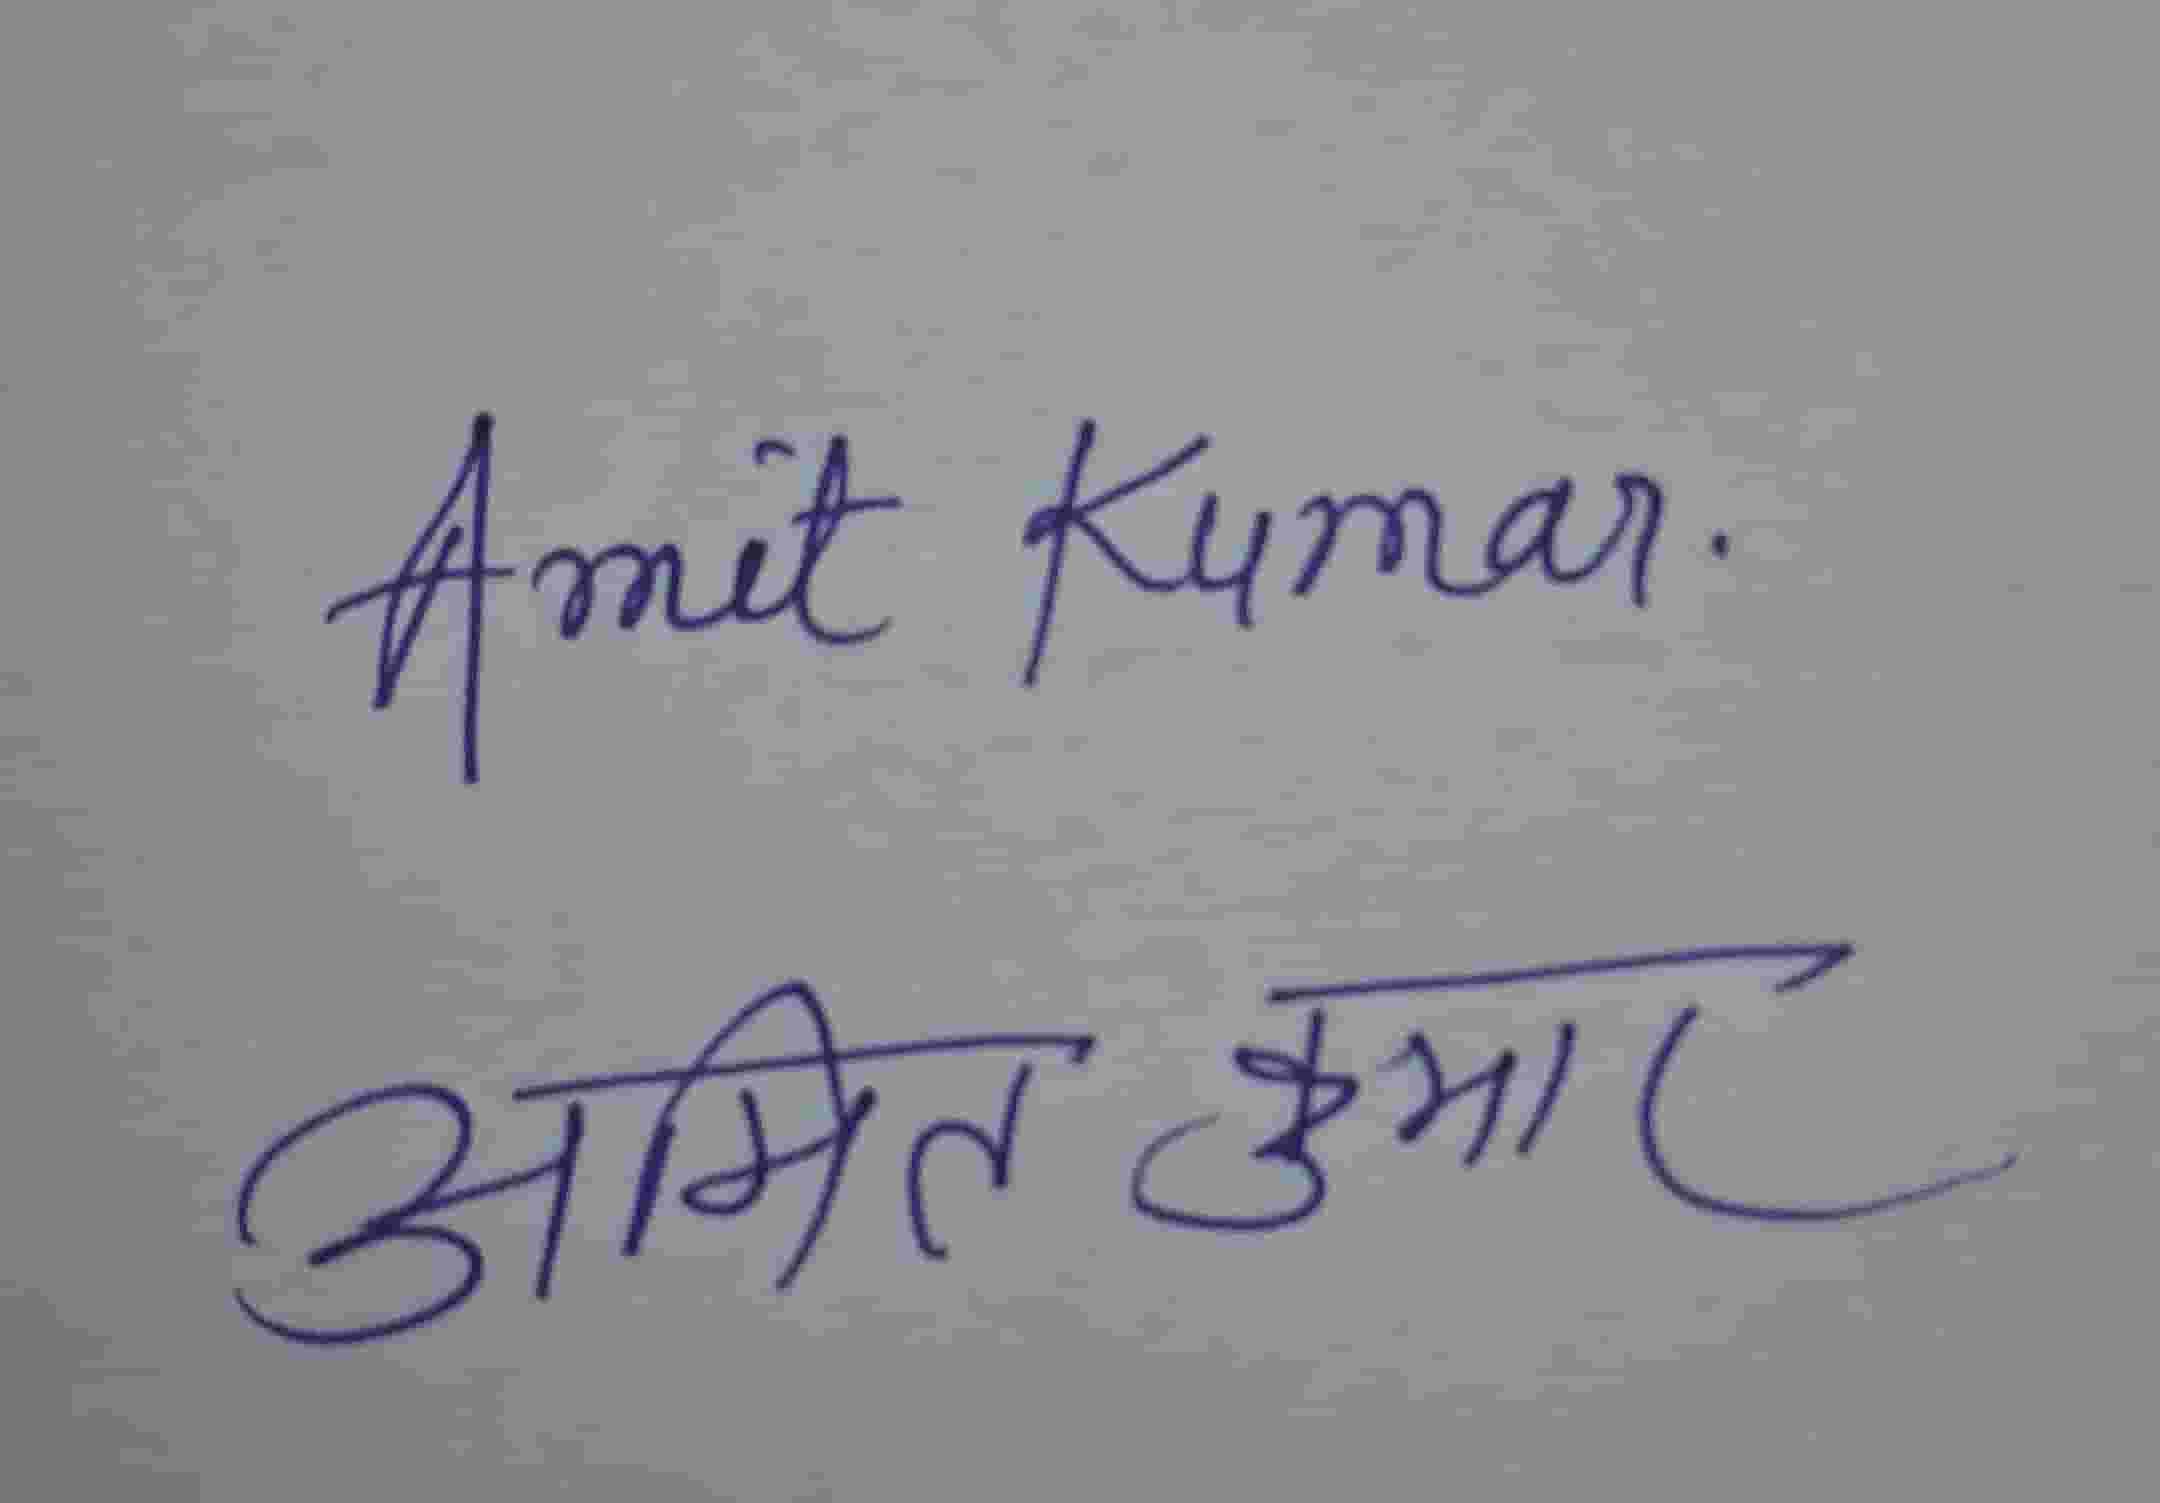 Amit Kumar.
अमित कुमार